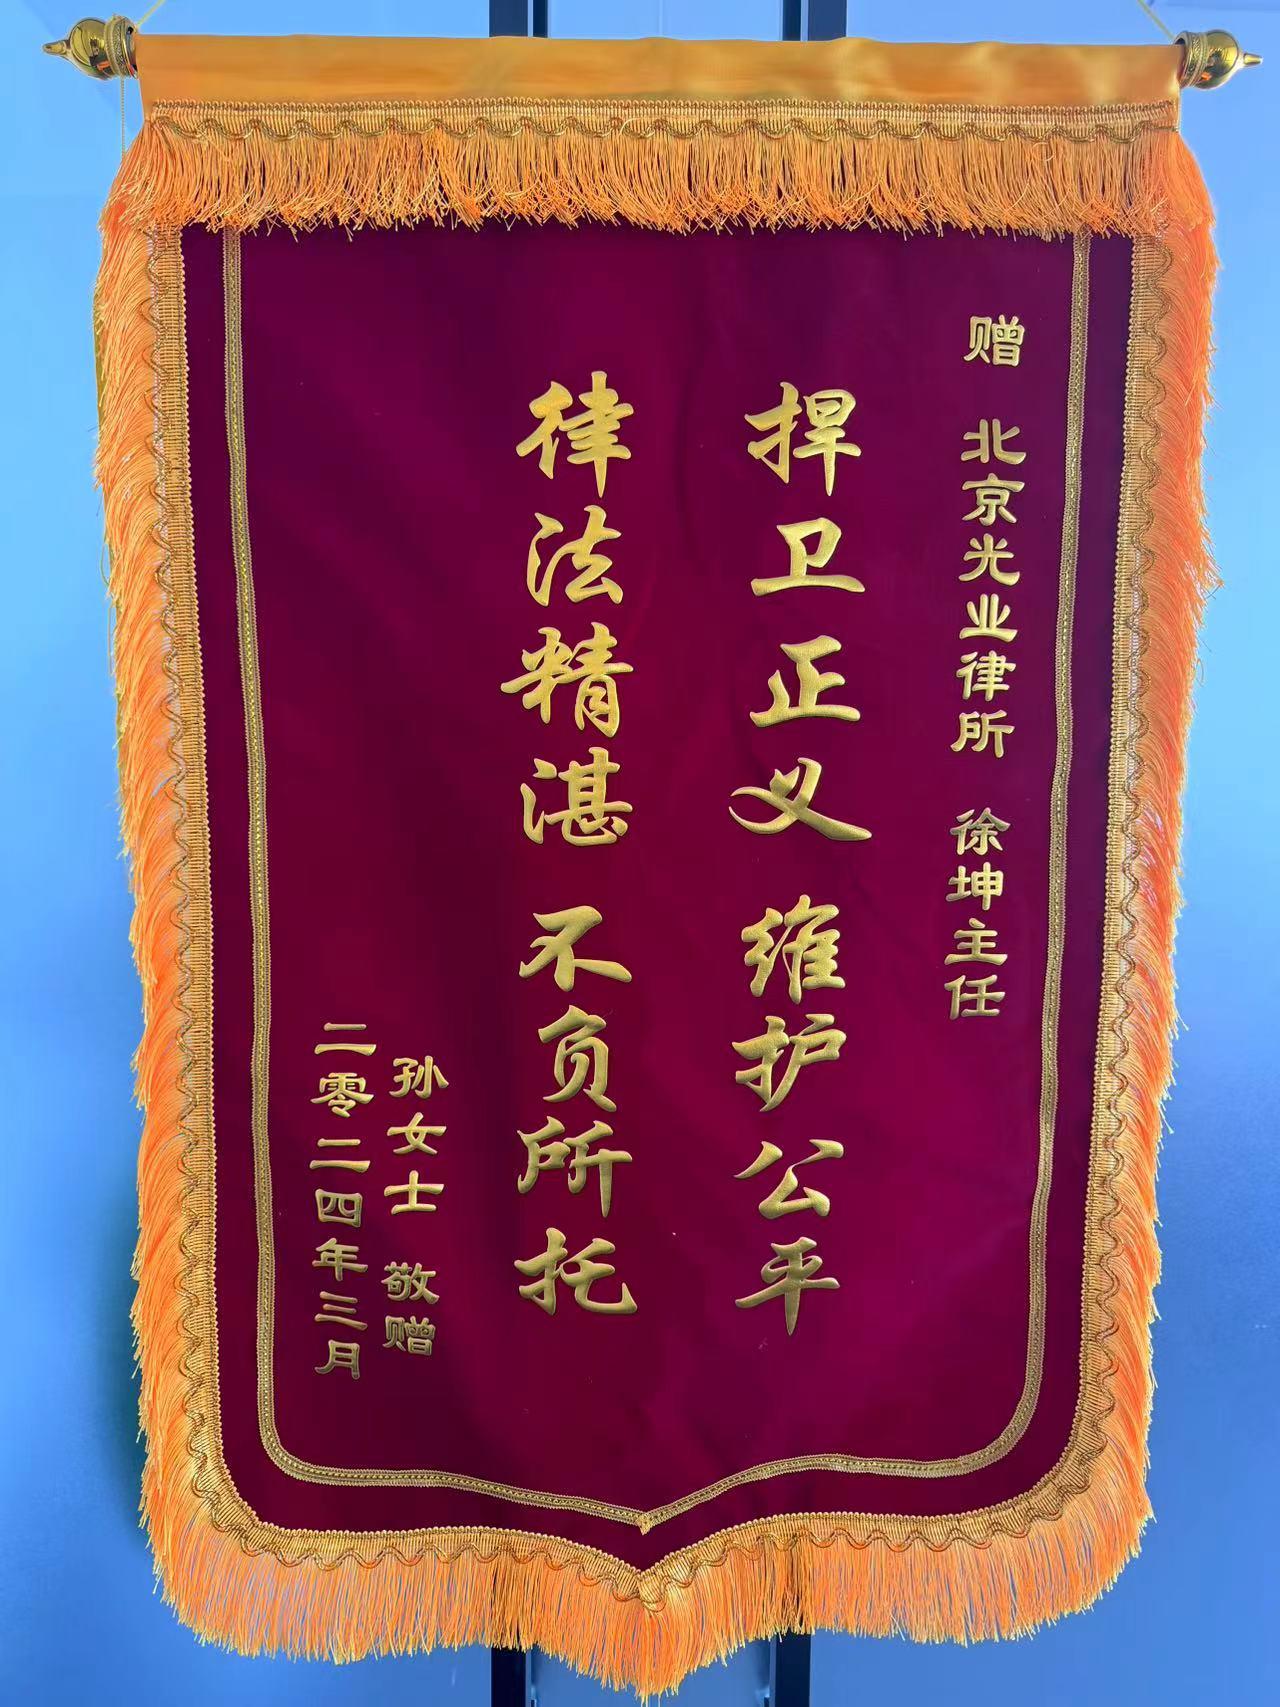 赠 北京光业律所 徐坤主任
捍卫正义 维护公平
律法精湛 不负所托
孙女士 敬赠
二零二四年三月